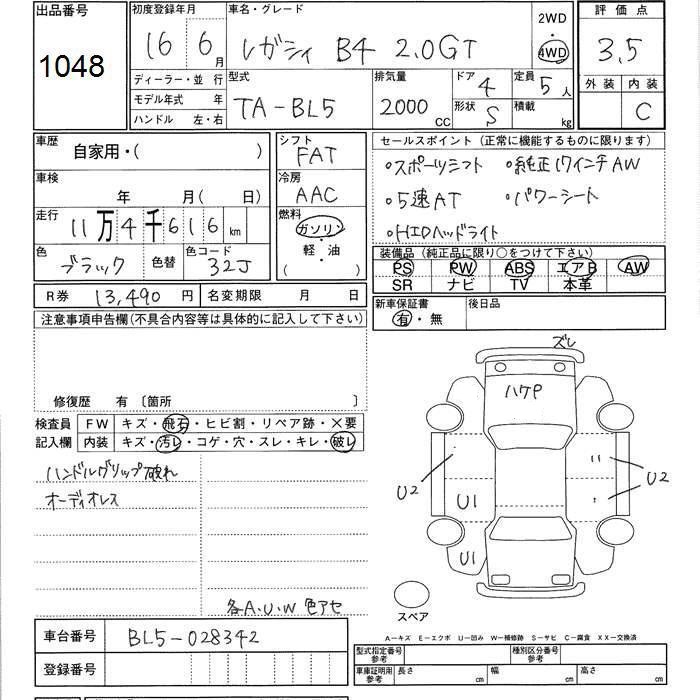 出品番号 1048
初度登録年月 16 6 月
車名・グレード レガシィ B4 2.0GT
2WD
4WD
評価点 3.5
外装 内装
C
ディーラー・並行
モデル年式 年
ハンドル 左・右
型式 TA-BL5
排気量 2000 CC
ドア 4
形状 S
定員 5 人
積載 kg
車歴 自家用・( )
車検 年 月( 日)
走行 11万4千616 km
色 ブラック 色替
色コード 32J
シフト FAT
冷房 AAC
燃料 ガソリン
・
軽・油
( )
セールスポイント(正常に機能するものに限ります)
○スポーツシフト ○純正17インチAW
○5速AT ○パワーシート
○HIDヘッドライト
装備品(純正品に限り○をつけて下さい)
PS PW ABS エアB AW
SR ナビ TV 本革
R券 13,490 円
名変期限 月 日
新車保証書 有・無
後日品
注意事項申告欄(不具合内容等は具体的に記入して下さい)
修復歴 有 〔箇所 〕
検査員記入欄
FW キズ・飛石・ヒビ割・リペア跡・×要
内装 キズ・汚レ・コゲ・穴・スレ・キレ・破レ
ハンドルグリップ破れ
オーディオレス
各A.U.W 色アセ
ズレ
ハケP
U2
U1
U1
U2
スペア
A―キズ E―エクボ U―凹み W―補修跡 S―サビ C―腐食 XX―交換済
車台番号 BL5-028342
登録番号
型式指定番号 参考
種別区分番号 参考
車庫証明用 参考 長さ cm 幅 cm 高さ cm